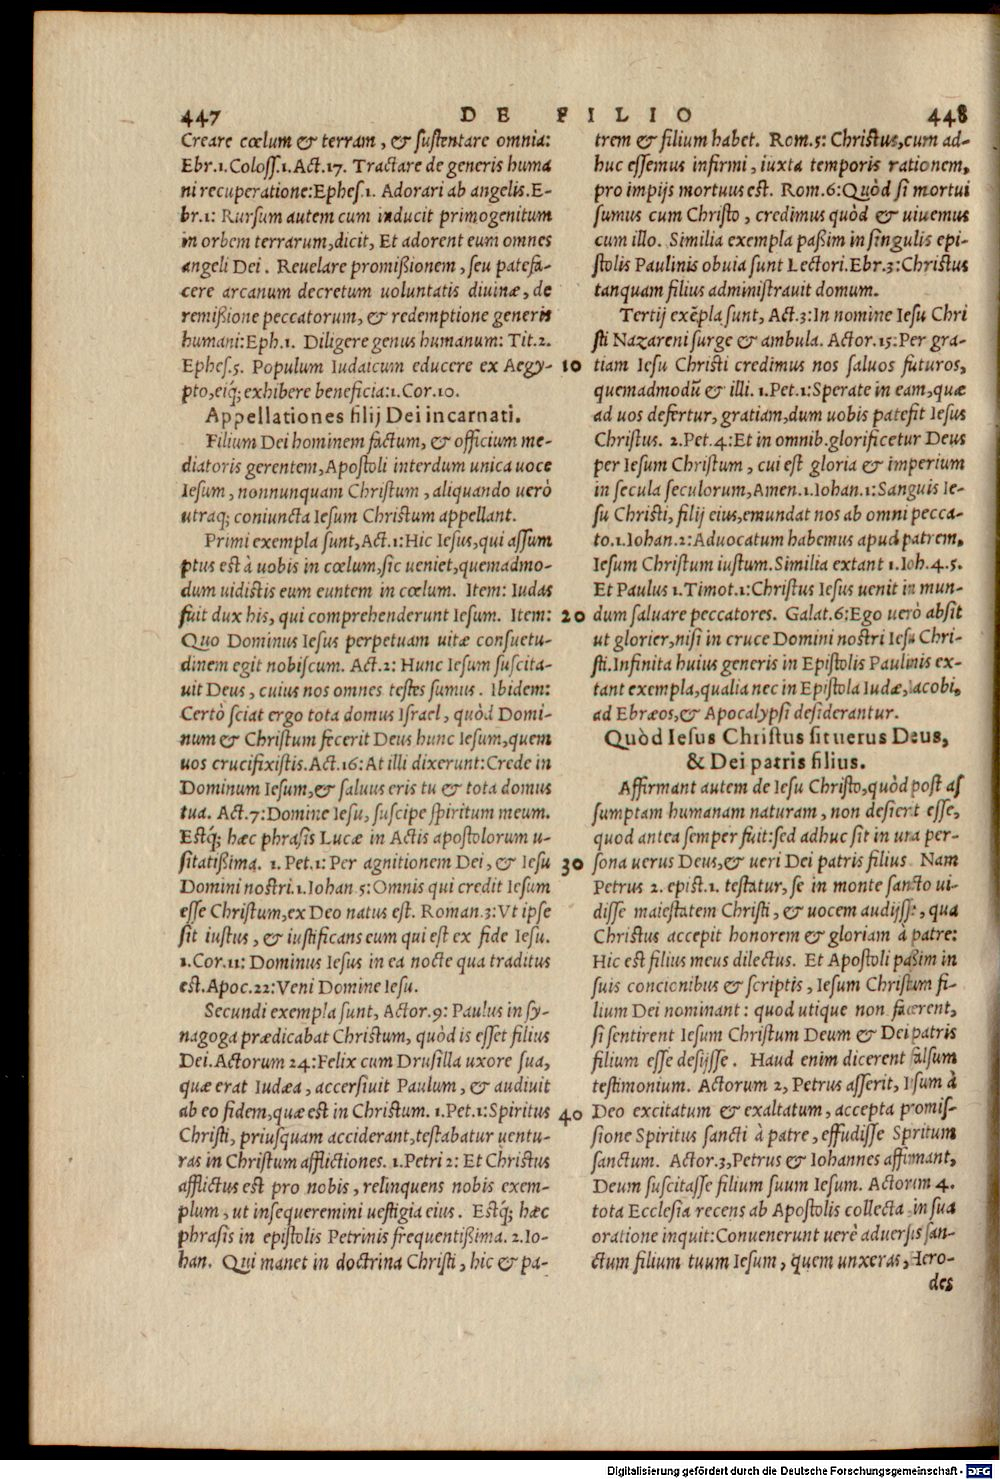 447 DE FILIO 448
Creare cœlum & terram, & sustentare omnia:
Ebr.1.Coloss.1.Act.17. Tractare de generis huma
ni recuperatione:Ephes.1. Adorari ab angelis.E-
br.1: Rursum autem cum inducit primogenitum
in orbem terrarum,dicit, Et adorent eum omnes
angeli Dei. Reuelare promißionem, seu patefa-
cere arcanum decretum uoluntatis diuinæ, de
remißione peccatorum, & redemptione generis
humani:Eph.1. Diligere genus humanum: Tit.2.
Ephes.5. Populum Iudaicum educere ex Aegy-
pto,eiq́; exhibere beneficia:1.Cor.10.
Appellationes filij Dei incarnati.
Filium Dei hominem factum, & officium me-
diatoris gerentem,Apostoli interdum unica uoce
Iesum, nonnunquam Christum, aliquando uerò
utraq; coniuncta Iesum Christum appellant.
Primi exempla sunt,Act.1:Hic Iesus,qui assum
ptus est à uobis in cœlum,sic ueniet,quemadmo-
dum uidistis eum euntem in cœlum. Item: Iudas
fuit dux his, qui comprehenderunt Iesum. Item:
Quo Dominus Iesus perpetuam uitæ consuetu-
dinem egit nobiscum. Act.2: Hunc Iesum suscita-
uit Deus, cuius nos omnes testes sumus. Ibidem:
Certò sciat ergo tota domus Israel, quòd Domi-
num & Christum fecerit Deus hunc Iesum,quem
uos crucifixistis.Act.16:At illi dixerunt:Crede in
Dominum Iesum,& saluus eris tu & tota domus
tua. Act.7:Domine Iesu, suscipe spiritum meum.
Estq́; hæc phrasis Lucæ in Actis apostolorum u-
sitatißima. 1. Pet.1: Per agnitionem Dei, & Iesu
Domini nostri.1.Iohan 5:Omnis qui credit Iesum
esse Christum,ex Deo natus est. Roman.3:Vt ipse
sit iustus, & iustificans eum qui est ex fide Iesu.
1.Cor.11: Dominus Iesus in ea nocte qua traditus
est.Apoc.22:Veni Domine Iesu.
Secundi exempla sunt, Actor.9: Paulus in sy-
nagoga prædicabat Christum, quòd is esset filius
Dei.Actorum 24:Felix cum Drusilla uxore sua,
quæ erat Iudæa, accersiuit Paulum, & audiuit
ab eo fidem,quæ est in Christum. 1.Pet.1:Spiritus
Christi, priusquam acciderant,testabatur uentu-
ras in Christum afflictiones. 1.Petri 2: Et Christus
afflictus est pro nobis, relinquens nobis exem-
plum, ut insequeremini uestigia eius. Estq́; hæc
phrasis in epistolis Petrinis frequentißima. 2.Io-
han. Qui manet in doctrina Christi, hic & pa-
10
20
30
40
trem & filium habet. Rom.5: Christus,cum ad-
huc essemus infirmi, iuxta temporis rationem,
pro impijs mortuus est. Rom.6:Quòd si mortui
sumus cum Christo, credimus quòd & uiuemus
cum illo. Similia exempla paßim in singulis epi-
stolis Paulinis obuia sunt Lectori.Ebr.3:Christus
tanquam filius administrauit domum.
Tertij exēpla sunt, Act.3:In nomine Iesu Chri
sti Nazareni surge & ambula. Actor.15:Per gra-
tiam Iesu Christi credimus nos saluos futuros,
quemadmodū & illi. 1.Pet.1:Sperate in eam,quæ
ad uos defertur, gratiam,dum uobis patefit Iesus
Christus. 2.Pet.4:Et in omnib.glorificetur Deus
per Iesum Christum, cui est gloria & imperium
in secula seculorum,Amen.1.Iohan.1:Sanguis Ie-
su Christi, filij eius,emundat nos ab omni pecca-
to.1.Iohan.2:Aduocatum habemus apud patrem,
Iesum Christum iustum.Similia extant 1.Ioh.4.5.
Et Paulus 1.Timot.1:Christus Iesus uenit in mun-
dum saluare peccatores. Galat.6:Ego uerò absit
ut glorier,nisi in cruce Domini nostri Iesu Chri-
sti.Infinita huius generis in Epistolis Paulinis ex-
tant exempla,qualia nec in Epistola Iudæ,Iacobi,
ad Ebræos,& Apocalypsi desiderantur.
Quòd Iesus Christus sit uerus Deus,
& Dei patris filius.
Affirmant autem de Iesu Christo,quòd post as
sumptam humanam naturam, non desierit esse,
quod antea semper fuit:sed adhuc sit in una per-
sona uerus Deus,& ueri Dei patris filius. Nam
Petrus 2. epist.1. testatur, se in monte sancto ui-
disse maiestatem Christi, & uocem audijsse, qua
Christus accepit honorem & gloriam à patre:
Hic est filius meus dilectus. Et Apostoli paßim in
suis concionibus & scriptis, Iesum Christum fi-
lium Dei nominant: quod utique non facerent,
si sentirent Iesum Christum Deum & Dei patris
filium esse desijsse. Haud enim dicerent falsum
testimonium. Actorum 2, Petrus asserit, Iesum à
Deo excitatum & exaltatum, accepta promis-
sione Spiritus sancti à patre, effudisse Spiritum
sanctum. Actor.3,Petrus & Iohannes affirmant,
Deum suscitasse filium suum Iesum. Actorum 4.
tota Ecclesia recens ab Apostolis collecta in sua
oratione inquit:Conuenerunt uerè aduersus san-
ctum filium tuum Iesum, quem unxeras, Hero-
des
Digitalisierung gefördert durch die Deutsche Forschungsgemeinschaft - DFG